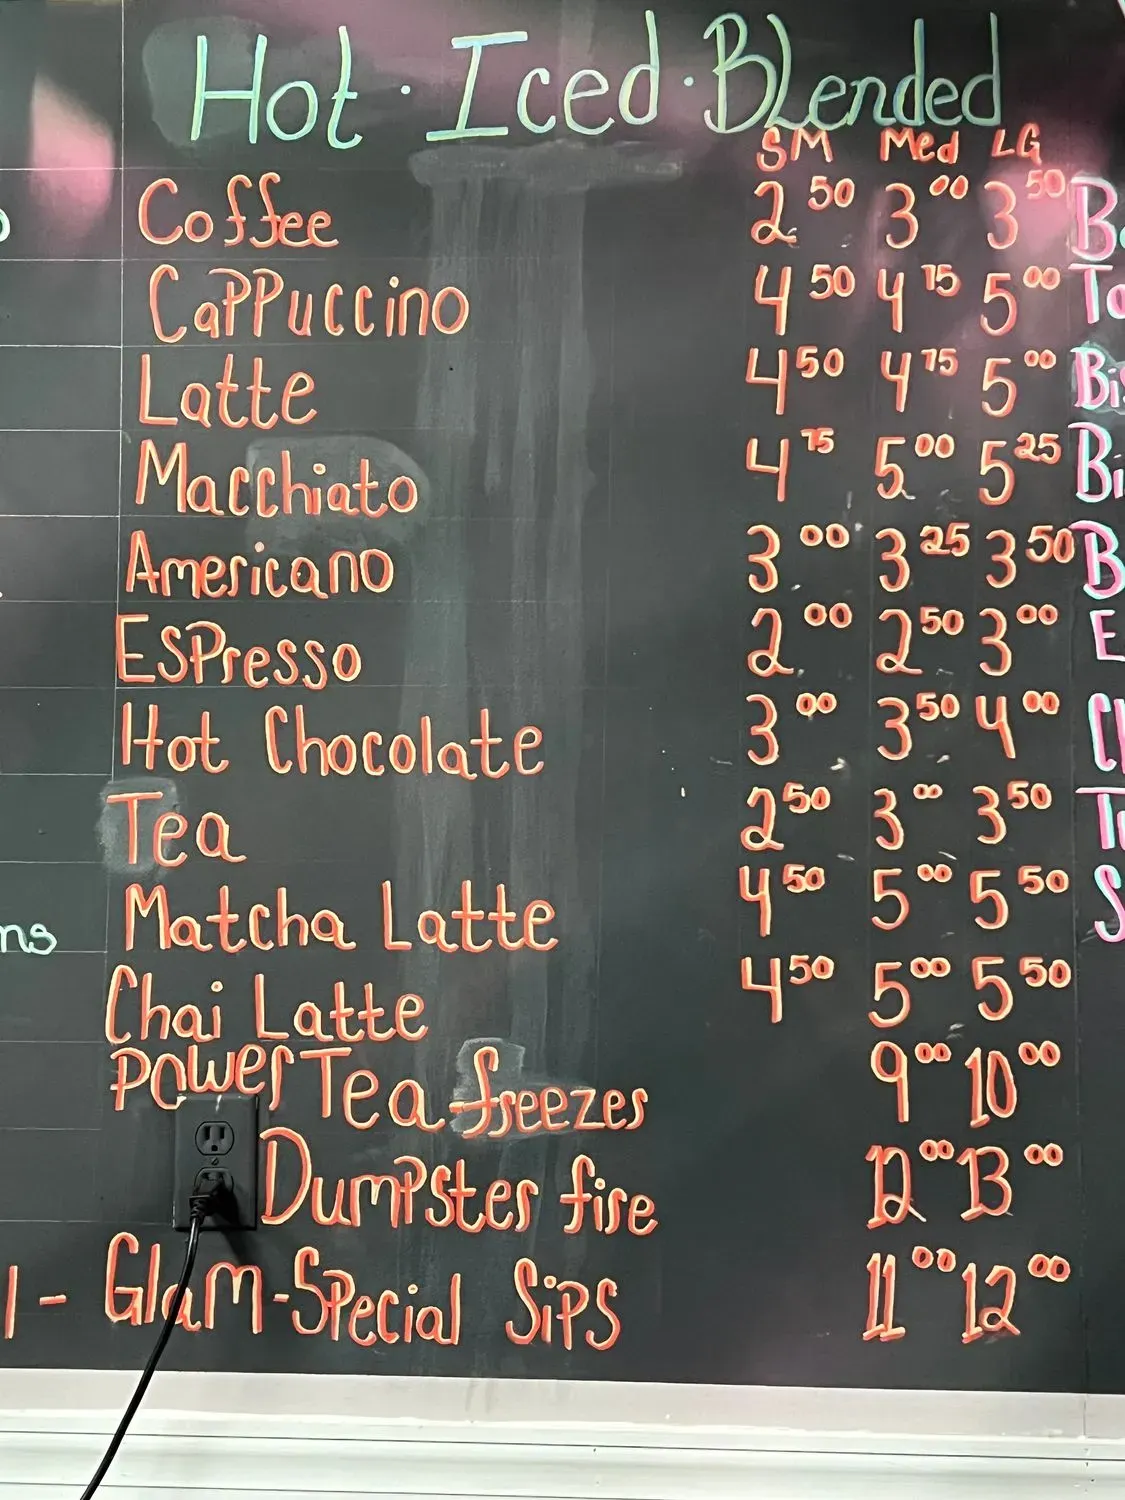 Hot · Iced · Blended
SM Med LG
Coffee 2 50 3 00 3 50
Cappuccino 4 50 4 75 5 00
Latte 4 50 4 75 5 00
Macchiato 4 75 5 00 5 25
Americano 3 00 3 25 3 50
Espresso 2 00 2 50 3 00
Hot Chocolate 3 00 3 50 4 00
Tea 2 50 3 00 3 50
Matcha Latte 4 50 5 00 5 50
Chai Latte 4 50 5 00 5 50
Power Tea freezes 9 00 10 00
Dumpster fire 12 00 13 00
Glam-Special Sips 11 00 12 00